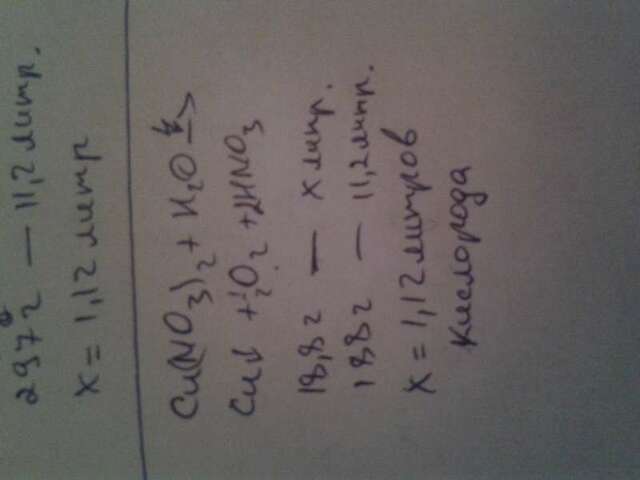 297 г — 11,2 литр.
x = 1,12 литр
Cu(NO3)2 + H2O →
Cu↓ + ½O2 + 2HNO3
18,8 г — x литр.
188 г — 11,2 литр.
x = 1,12 литров
кислорода